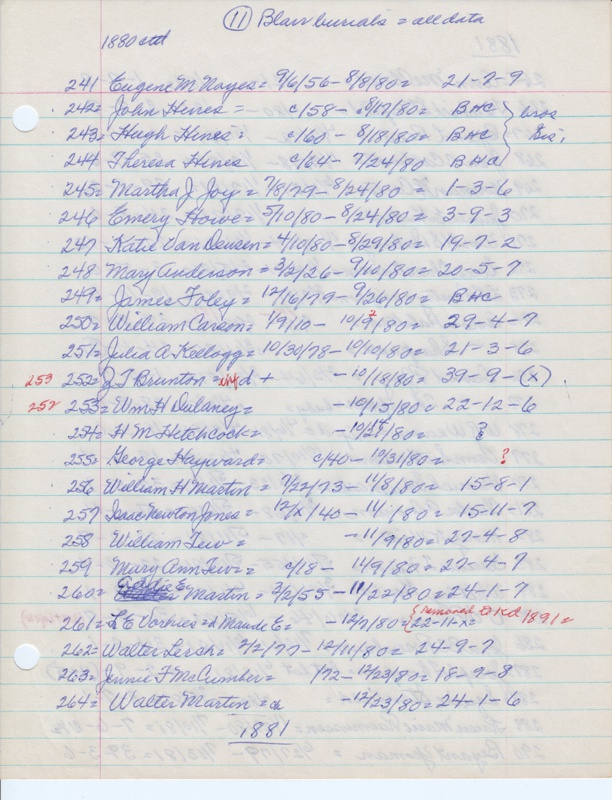 (11) Blair burials = all data
1880 ctd
241 Eugene M Noyes = 9/6/56 - 8/8/80 = 21-7-9
242 = John Hines = c/58 - 8/17/80 = BHC } bros
243 = Hugh Hines = c/60 - 8/18/80 = BHC } Sis,
244 Theresa Hines c/64 - 7/24/80 BHC
245 = Martha J. Joy = 7/8/79 - 8/24/80 = 1-3-6
246 Emery Howe = 5/10/80 - 8/24/80 = 3-9-3
247 Katie Van Deusen = 4/10/80 - 8/29/80 = 19-7-2
248 Mary Anderson = 3/2/26 - 9/10/80 = 20-5-7
249 = James Foley = 12/16/79 - 9/26/80 = BHC
250 = William Carson = 1/9/10 - 10/9/80 = 29-4-7
251 = Julia A Kellogg = 10/30/78 - 10/10/80 = 21-3-6
253 252 = J T Brunton = d + - 10/18/80 = 39-9-(x)
252 253 = Wm H Dulaney = - 10/15/80 = 22-12-6
254 = H M Hetchcock = /80 = ?
255 = George Hayward = c/40 - 10/31/80 = ?
256 William H Martin = 7/22/73 - 11/8/80 = 15-8-1
257 Isaac Newton Jones = 12/x/40 - 11/ /80 = 15-11-7
258 William Tew = - 11/9/80 = 27-4-8
259 Mary Ann Tew = c/18 - 11/9/80 = 27-4-7
260 = Addie E Martin = 3/2/55 - 11/22/80 = 24-1-7
261 = L E Vorhies = d Maude E = - 12/7/80 = 22-11-x = {removed to Kd 1891 =
262 = Walter Lersh = 2/2/77 - 12/11/80 = 24-9-7
263 = Jennie F McCumber = /72 - 12/23/80 = 18-9-8
264 = Walter Martin = ch - 12/23/80 = 24-1-6
1881